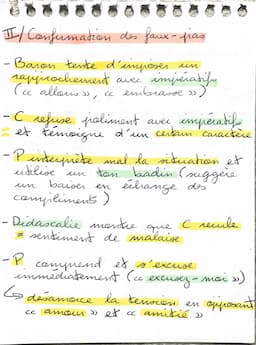 II/ Confirmation des faux-pas
- Baron tente d'imposer un
rapprochement avec impératifs
(« allons », « embrasse »)
- C refuse poliment avec impératifs
et témoigne d'un certain caractère
- P interprète mal la situation et
utilise un ton badin (suggère
un baiser en échange des
compliments)
- Didascalie montre que C recule
= sentiment de malaise
- P comprend et s'excuse
immédiatement (« excusez-moi »)
↳ désamorce la tension en opposant
« amour » et « amitié »